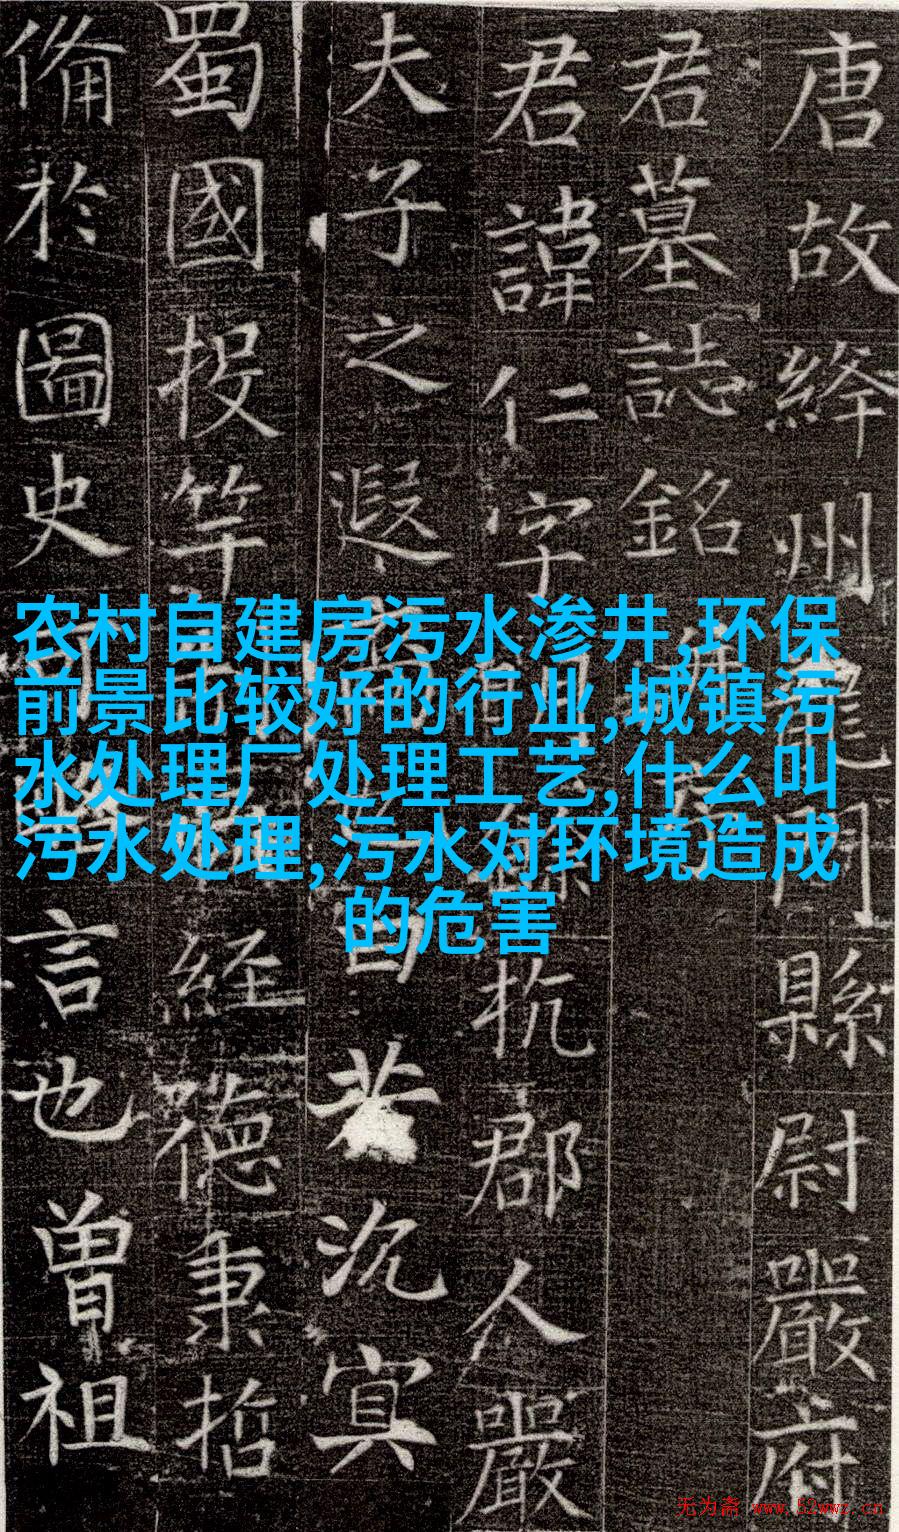 唐故絳州龍門縣尉嚴府
君墓誌銘并序
君諱仁字明餘杭郡人嚴
夫子之遐若沉冥
蜀國投竿經德秉哲
備於圖史可略言也曾祖
农村自建房污水渗井,环保
前景比较好的行业,城镇污
水处理厂处理工艺,什么叫
污水处理,污水对环境造成
的危害
无为斋 www.52wwz.cn